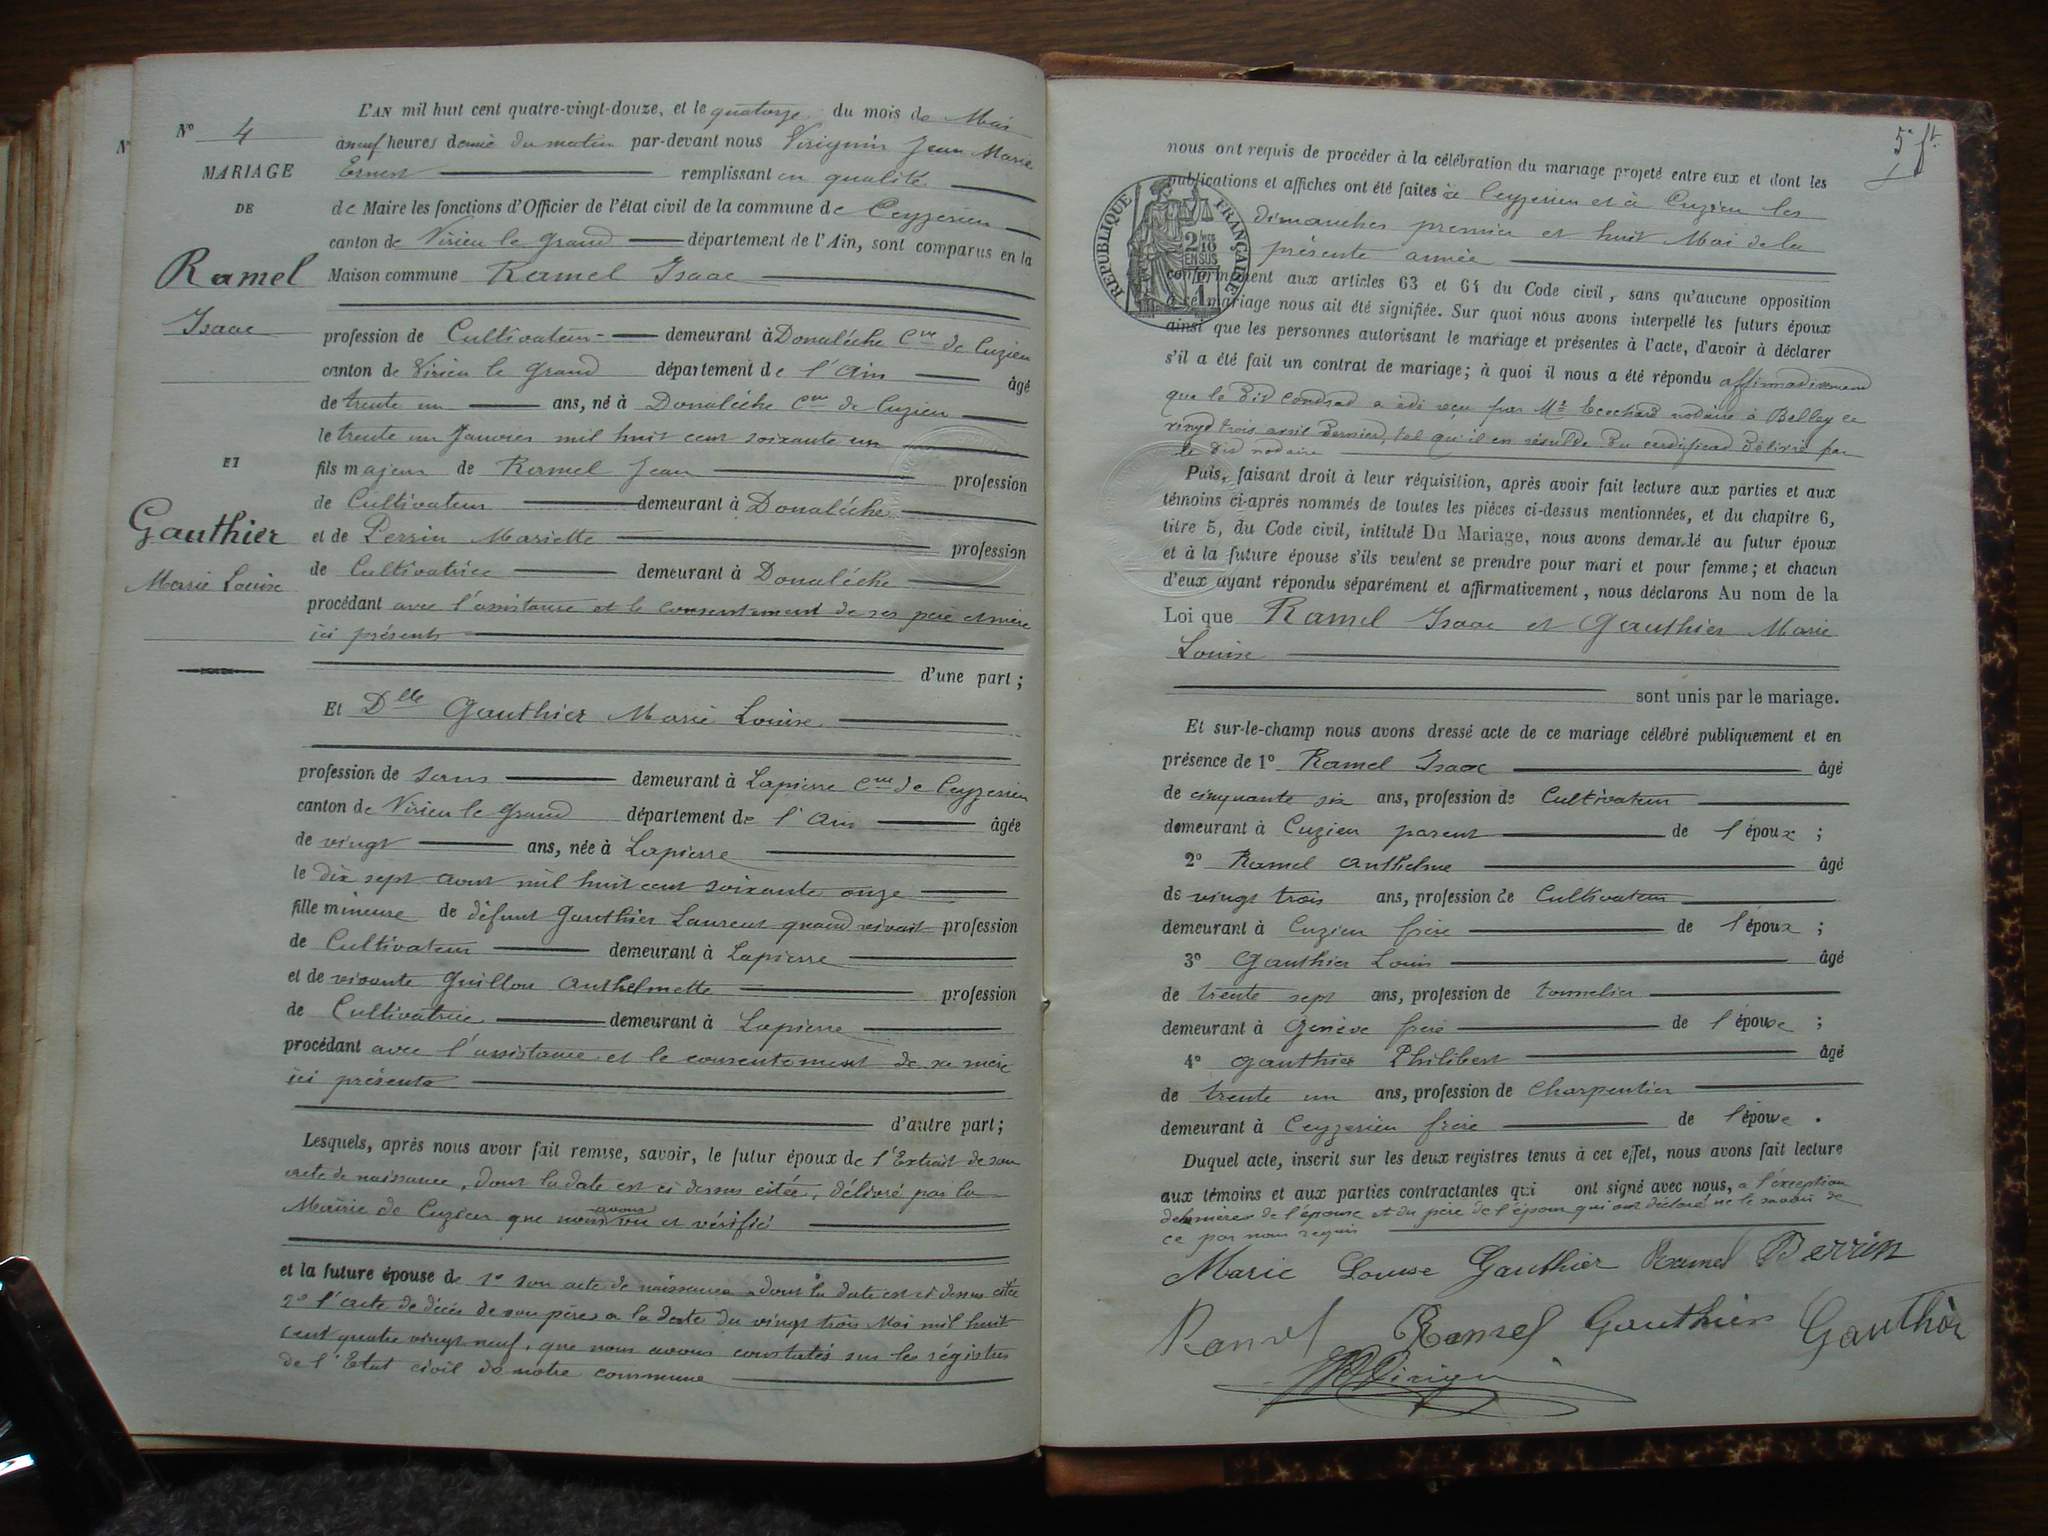 L'AN mil huit cent quatre-vingt-douze, et le quatorze du mois de Mai
N° 4
à neuf heures demie du matin par-devant nous Virignin Jean Marie
MARIAGE
Ernest remplissant en qualité
DE
de Maire les fonctions d'Officier de l'état civil de la commune de Ceyzerieu
canton de Virieu le Grand département de l'Ain, sont comparus en la
Ramel
Maison commune Ramel Isaac
Isaac
profession de Cultivateur demeurant à Donaléche Cne de Cuzieu
canton de Virieu le Grand département de l'Ain âgé
de trente un ans, né à Donaléche Cne de Cuzieu
le trente un Janvier mil huit cent soixante un
ET
fils majeur de Ramel Jean profession
de Cultivateur demeurant à Donaléche
Gauthier
et de Perrin Mariette profession
Marie Louise
de Cultivatrice demeurant à Donaléche
procédant avec l'assistance et le consentement de ses père et mère
ici présents
d'une part ;
Et Dlle Gauthier Marie Louise
profession de sans demeurant à Lapierre Cne de Ceyzerieu
canton de Virieu le Grand département de l'Ain âgée
de vingt ans, née à Lapierre
le dix sept aout mil huit cent soixante onze
fille mineure de défunt Gauthier Laurent quand vivait profession
de Cultivateur demeurant à Lapierre
et de vivante Guillon Anthelmette profession
de Cultivatrice demeurant à Lapierre
procédant avec l'assistance et le consentement de sa mère
ici présente
d'autre part ;
Lesquels, après nous avoir fait remise, savoir, le futur époux de l'Extrait de son
acte de naissance, dont la date est ci dessus citée, délivré par la
Mairie de Cuzieu que nous avons vu et vérifié
et la future épouse de 1° son acte de naissance dont la date est ci dessus citée
2° l'acte de décès de son père a la date du vingt trois Mai mil huit
cent quatre vingt neuf, que nous avons constatés sur les régistres
de l'Etat civil de notre commune
5e ft
nous ont requis de procéder à la célébration du mariage projeté entre eux et dont les
publications et affiches ont été faites à Ceyzerieu et à Cuzieu les
dimanches premier et huit Mai de la
présente année
RÉPUBLIQUE FRANÇAISE
2/10 EN SUS
1
conformément aux articles 63 et 64 du Code civil, sans qu'aucune opposition
à ce mariage nous ait été signifiée. Sur quoi nous avons interpellé les futurs époux
ainsi que les personnes autorisant le mariage et présentes à l'acte, d'avoir à déclarer
s'il a été fait un contrat de mariage ; à quoi il nous a été répondu affirmativement
que le dit contrat a été reçu par Me notaire à Belley le
vingt trois avril dernier, tel qu'il en résulte du certificat délivré par
le dit notaire
Puis, faisant droit à leur réquisition, après avoir fait lecture aux parties et aux
témoins ci-après nommés de toutes les pièces ci-dessus mentionnées, et du chapitre 6,
titre 5, du Code civil, intitulé Du Mariage, nous avons demandé au futur époux
et à la future épouse s'ils veulent se prendre pour mari et pour femme ; et chacun
d'eux ayant répondu séparément et affirmativement, nous déclarons Au nom de la
Loi que Ramel Isaac et Gauthier Marie
Louise
sont unis par le mariage.
Et sur-le-champ nous avons dressé acte de ce mariage célébré publiquement et en
présence de 1° Ramel Isaac âgé
de cinquante six ans, profession de Cultivateur
demeurant à Cuzieu parent de l'époux ;
2° Ramel Anthelme âgé
de vingt trois ans, profession de Cultivateur
demeurant à Cuzieu frère de l'époux ;
3° Gauthier Louis âgé
de trente sept ans, profession de tonnelier
demeurant à Genève frère de l'épouse ;
4° Gauthier Philibert âgé
de trente un ans, profession de Charpentier
demeurant à Ceyzerieu frère de l'épouse .
Duquel acte, inscrit sur les deux registres tenus à cet effet, nous avons fait lecture
aux témoins et aux parties contractantes qui ont signé avec nous, a l'exception
de la mère de l'épouse et du père de l'époux qui ont déclaré ne le savoir de
ce par nous requis
Marie Louise Gauthier Ramel Perrin
Ramel Ramel Gauthier Gauthier
Virignin